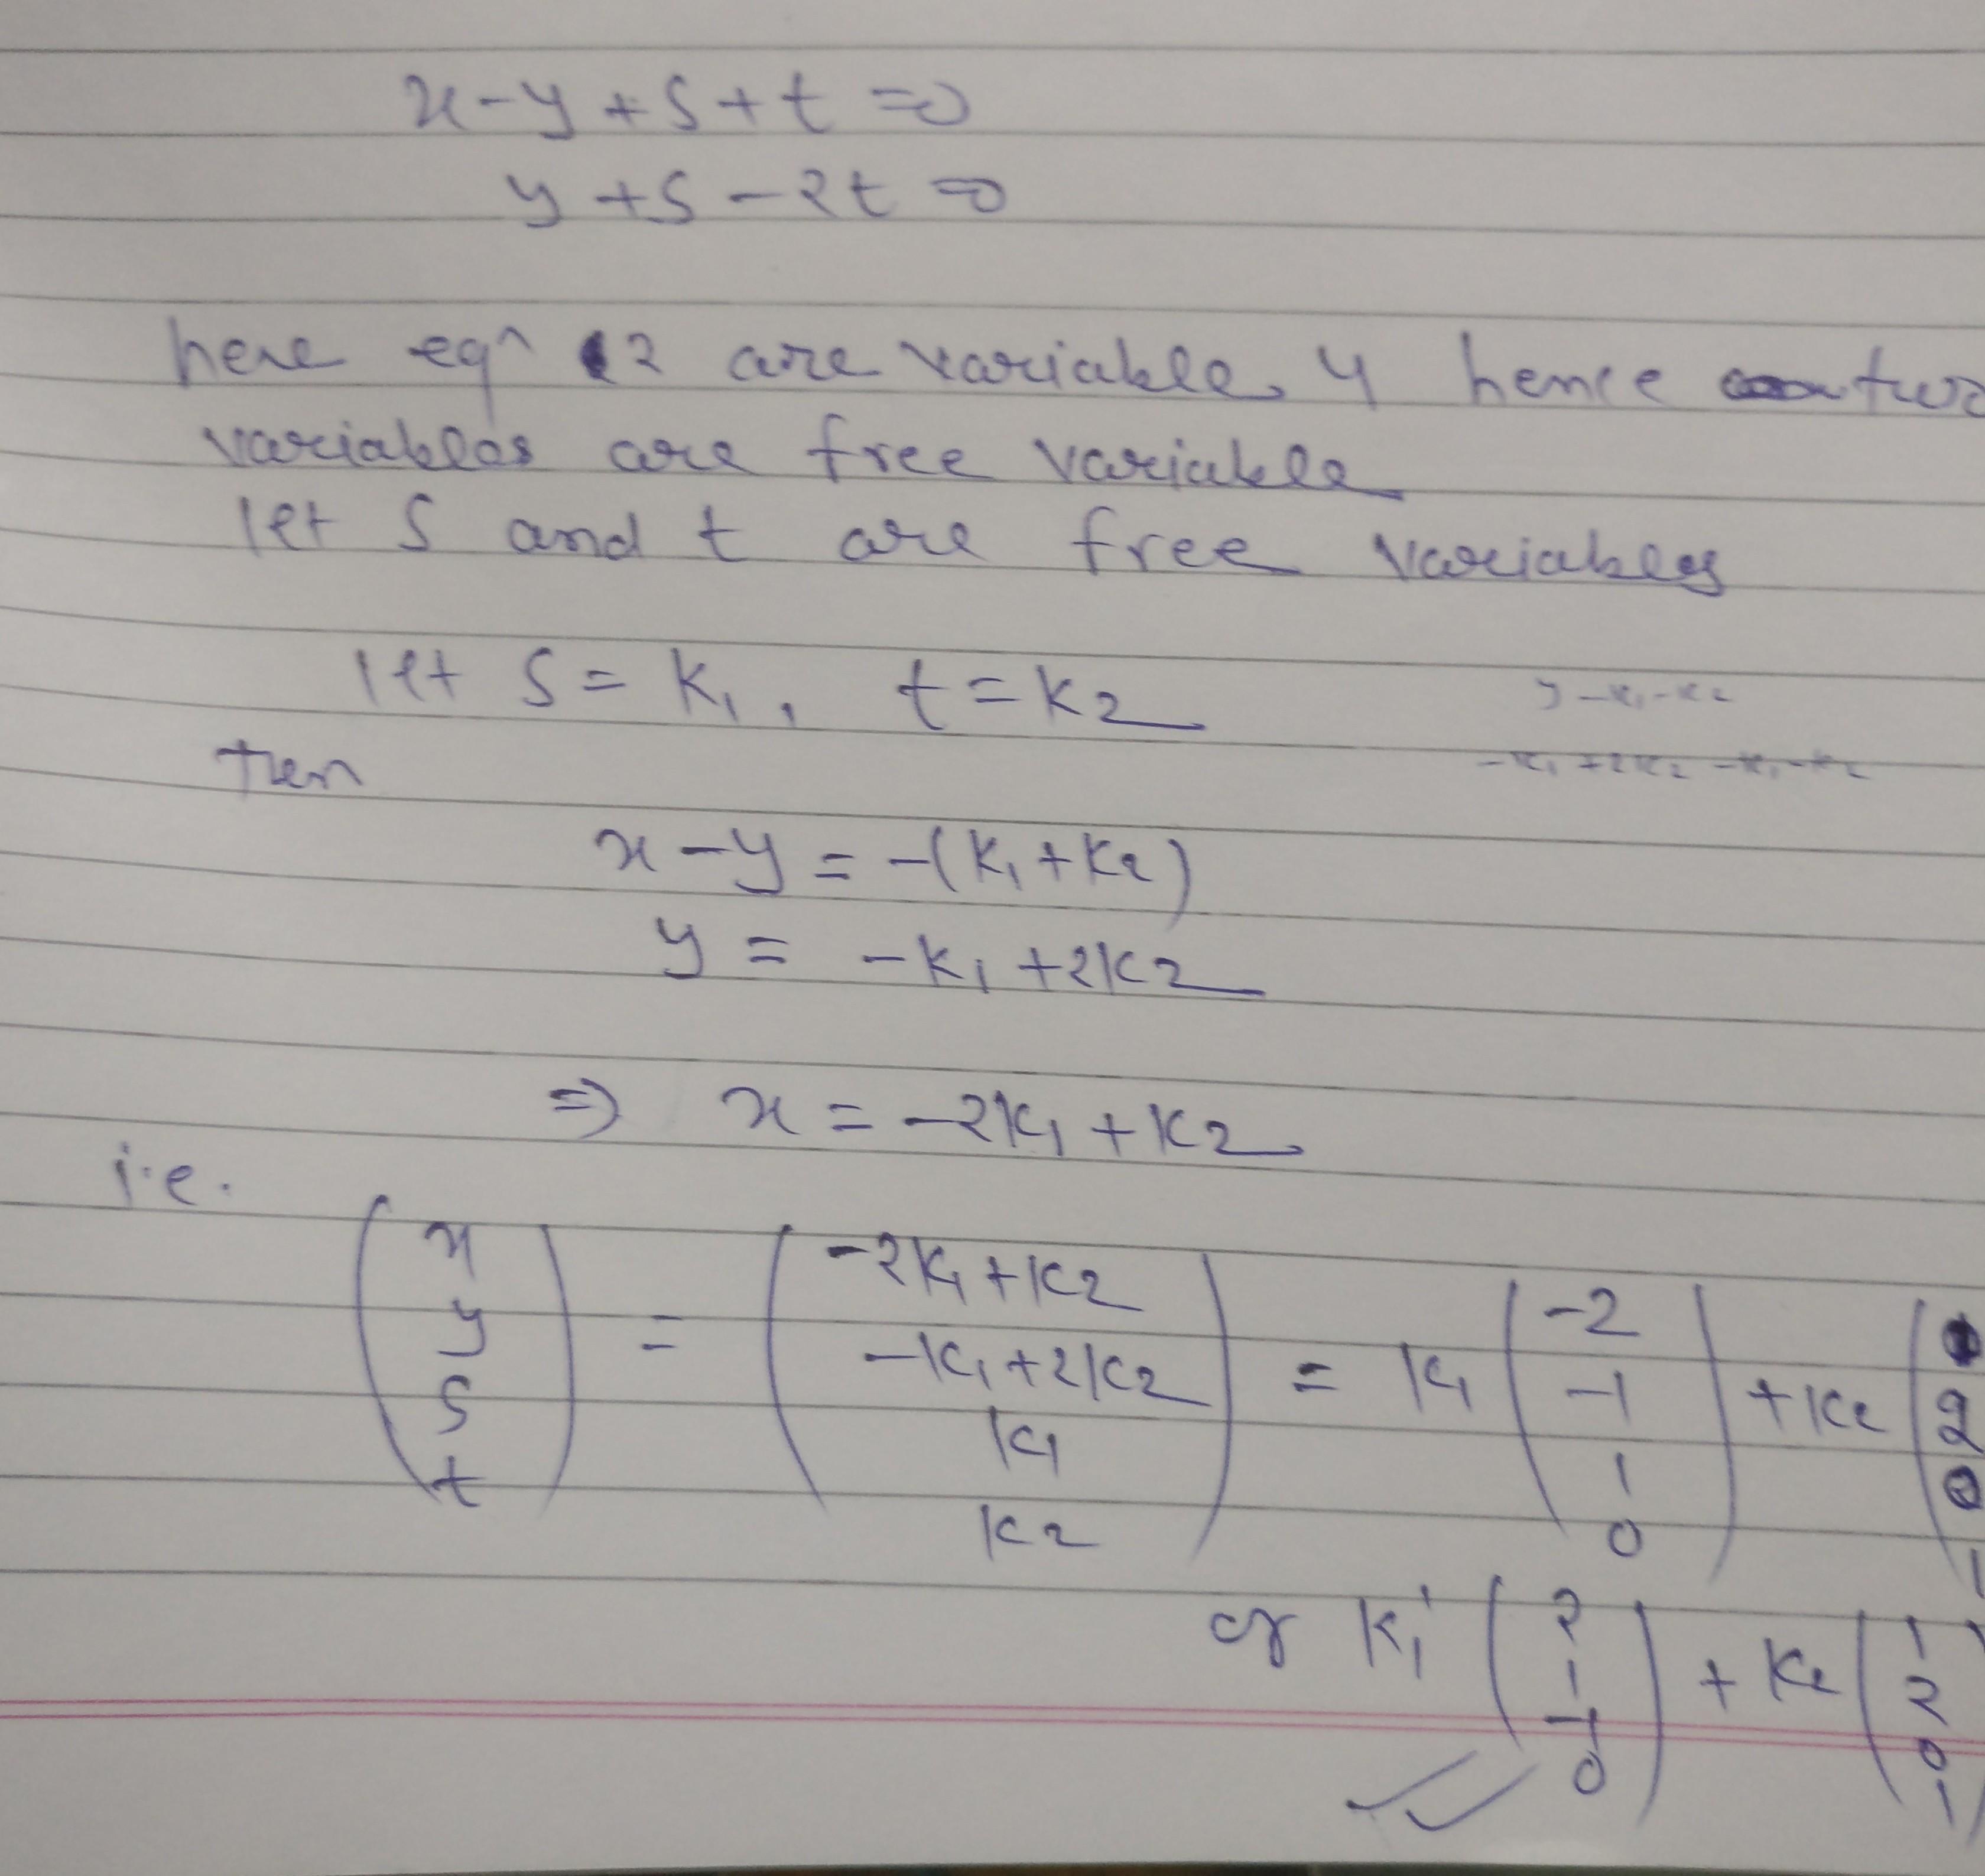 x - y + s + t = 0
y + s - 2t = 0
here eqn 2 are variable 4 hence two
variables are free variable
let s and t are free variables
let s = k1, t = k2
y - k1 - k2
then
-k1 + 2k2 - k1 - k2
x - y = -(k1 + k2)
y = -k1 + 2k2
⇒ x = -2k1 + k2
i.e.
(x y s t) = (-2k1 + k2 -k1 + 2k2 k1 k2) = k1 (-2 -1 1 0) + k2 ( 2 0 1
or k1' (2 1 -1 0) + k2 (1 2 0 1)